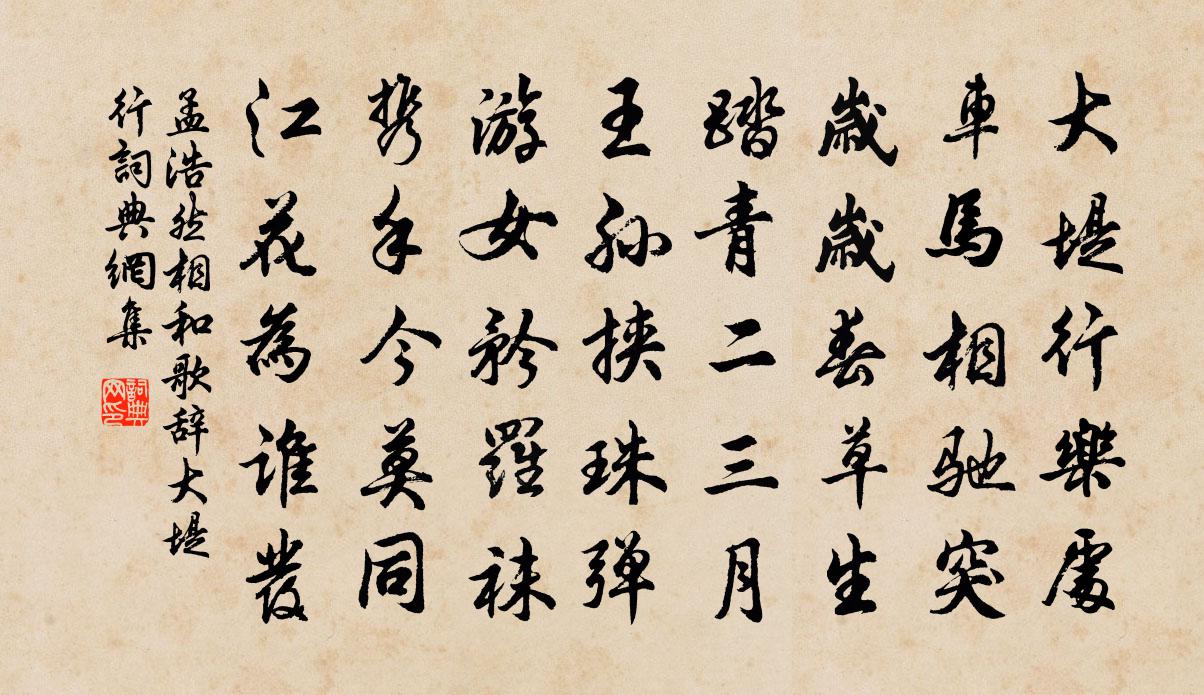 大堤行樂處
車馬相馳突
歲歲春草生
踏青二三月
王孫挾珠彈
游女矜羅袜
携手今莫同
江花為誰發
孟浩然相和歌辞大堤
行詞典網集
詞典网印